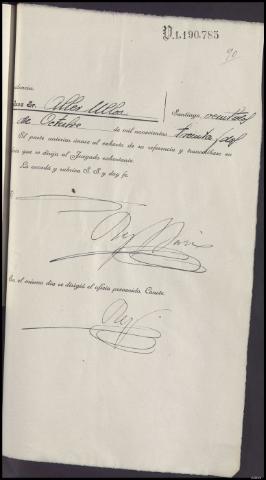 D.1.190.785
90
dencia
Sr. Alles Ulloa
Santiago, veintidos
de Octubre de mil novecientos treinta y dos
El parte anterior únase al exhorto de su referencia y transcríbase en
que se dirija al Juzgado exhortante.
Lo acordó y rubrica S. S. y doy fe.
En el mismo día se dirigió el oficio prevenido. Conste.